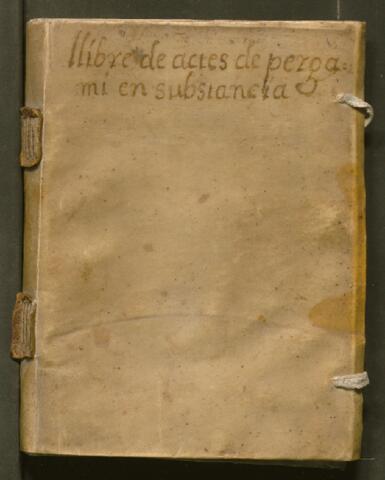 llibre de actes de perga-
mi en substancia